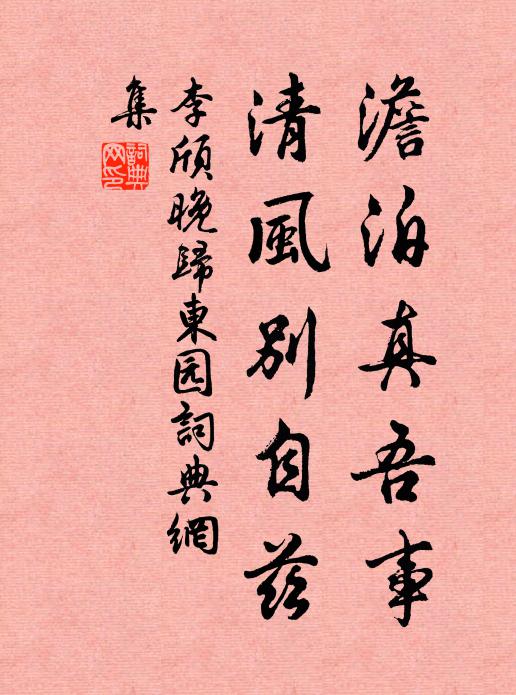 澹泊真吾事
清風別自茲
李頎晚歸東园詞典網
集
詞典网印